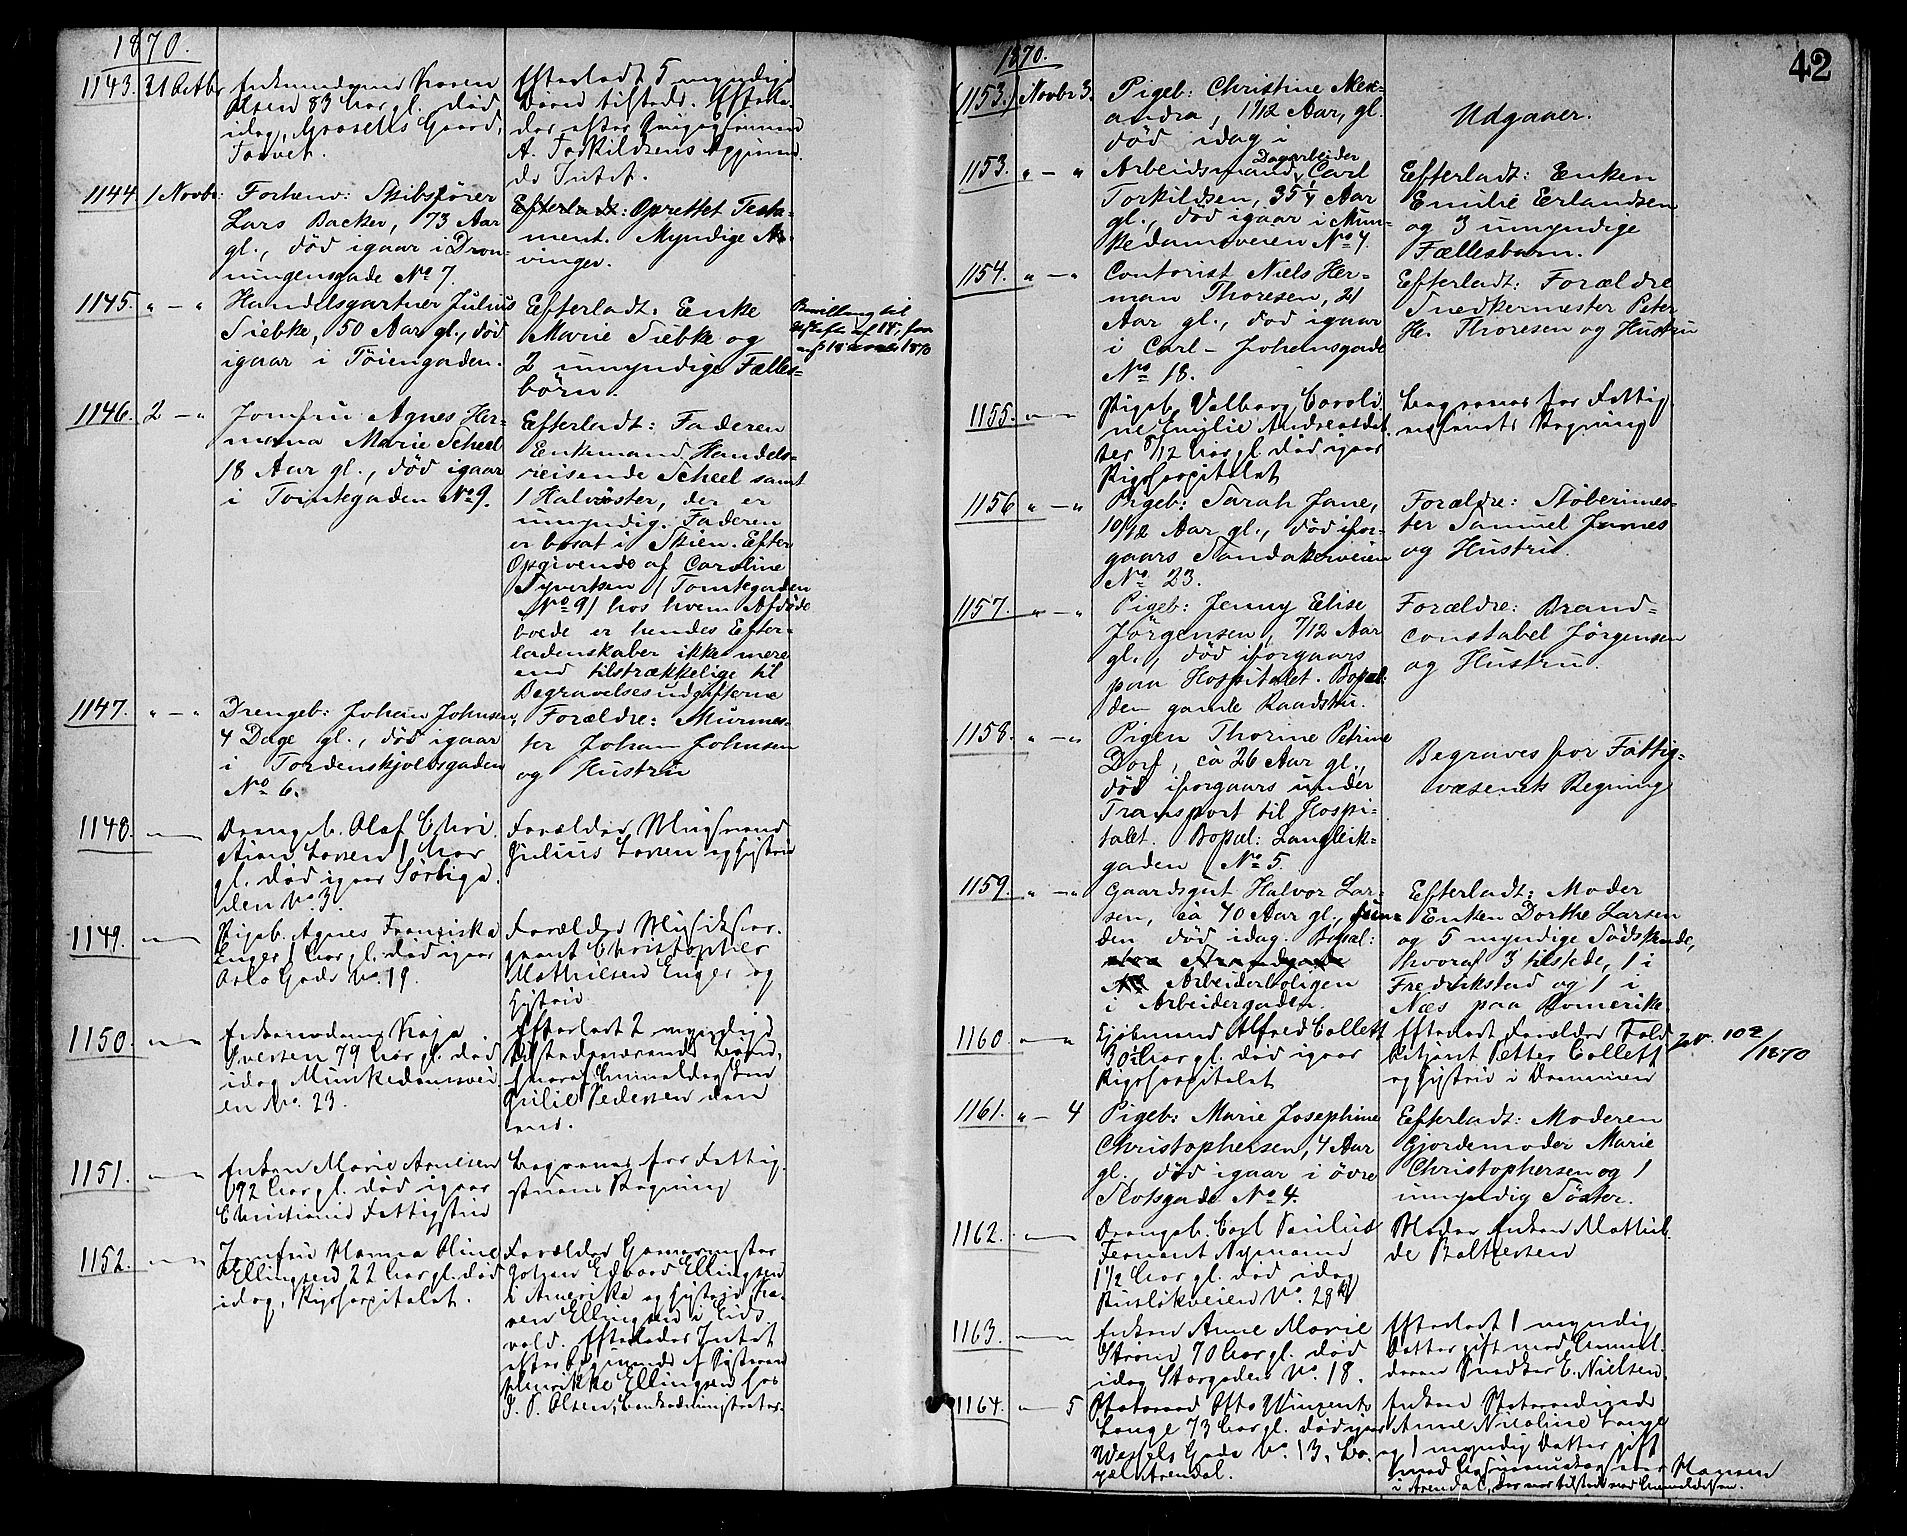 1870.
1143. 31 Octbr
Olsen 83 Aar gl. død
idag, Grosells Gaard,
Torvet.
Efterladt 5 myndige
Børn tilstede.
1144. 1 Novbr: Forhenv: Skibsfører
Lars Backer, 73 Aar
gl., død igaar i Dron-
ningensgade No 7.
Efterladt: Oprettet Testa-
ment. Myndige Ar-
vinger.
1145. " — " Handelsgartner Julius
Siebke, 50 Aar gl., død
igaar i Töiengaden.
Efterladt: Enke
Marie Siebke og
2 umyndige Fælles-
børn.
Bevilling til
1146. 2 — " Jomfru Agnes Her-
mana Marie Scheel
18 Aar gl., død igaar
i Tomtegaden No 9.
Efterladt: Faderen
Enkemand, Handels-
reisende Scheel samt
1 Halvsöster, der er
umyndig. Faderen
er bosat i Skien. Efter
Opgivende af Caroline
Syvertsen (Tomtegaden
No 9) hos hvem Afdöde
boede er hendes Efter-
ladenskaber ikke mere
end tilstrækkelige til
Begravelsesudgifterne
1147. " — " Drengeb: Johan Johnsen,
4 Dage gl., död igaar
i Tordenskjoldsgaden
No 6.
Forældre: Murmes-
ter Johan Johnsen
og Hustru
1148. Drengeb. Olaf Chri
stian Larsen 1 Aar
gl. död igaar Sörbyga
den No 3.
Forældre
Julius Larsen og Hustru
1149. Pigeb. Agnes Franziska
Enger 1 Aar gl. död igaar
Oslo Gade No 19.
Forældre Musikser-
geant Christopher
Mathiesen Enger og
Hustru
1150. Enkemadame Kaja
Iversen 79 Aar gl. död
idag Munkedamsvei
en No. 23.
Efterladt 2 myndige
tilstedeværende Børn,
hvoraf Anmeldersken
Julie Pedersen den
ene.
1151. Enken Marie Arnesen
92 Aar gl. död igaar
Christiania Fattighus
Begraves for Fattig
Regning
1152. Jomfru Hanna Oline
Ellingsen 22 Aar gl. död
idag, Rigshospitalet.
Forældre
Johan Edvard Ellingsen
i Amerika og Hustru Ka-
ren Ellingsen i Eids
vold. Efterlader Intet
efter Opgivende af Söstren
Henrikke Ellingsen hos
42
1870.
(1153.) Novbr 3. Pigeb: Christine Alex-
andra, 1 1/12 Aar, gl.
död idag i
Udgaaer.
1153. " — " Arbeidsmand, Dagarbeider Carl
Torkildsen, 35 1/4 Aar
gl., död igaar i Mun-
kedamsveien No 4.
Efterladt: Enken
Emilie Erlandsen
og 3 umyndige
Fællesbarn.
1154. " — " Contorist Niels Her-
man Thoresen, 21
Aar gl., död igaar
i Carl-Johansgade
No 18.
Efterladt: Forældre
Snedkermester Peter
H. Thoresen og Hustru
1155. Pigeb. Valborg Caroli
ne Emilie Andreasdat
ter 8/12 Aar gl. död igaar
Rigshospitalet
Begraves for Fattig
væsenets Regning
1156 " — " Pigeb: Sarah Jane,
10/12 Aar gl., död ifor-
gaars Sandakerveien
No 23.
Forældre: Støberimes-
ter Samuel James
og Hustru.
1157. " — " Pigeb: Jenny Elise
Jörgensen, 7/12 Aar
gl., död iforgaars
paa Hospitalet. Bopæl:
den gamle Raadstu.
Forældre: Brand-
constabel Jörgensen
og Hustru.
1158. " — " Pigen Thorine Petrine
Dorf, ca 26 Aar gl.,
död iforgaars under
Transport til Hospi-
talet. Bopæl: Langleik-
gaden No 5.
Begraves for Fattig-
væsenets Regning
1159. " — " Gaardsgut Halvor Lar-
sen, ca 40 Aar gl., fun-
den död idag. Bopæl:
Arbeiderboligen
i Arbeidergaden.
Efterladt: Moder
Enken Dorthe Larsen
og 5 myndige Södskende,
hvoraf 3 tilstede, 1 i
Fredrikstad og 1 i
Næs paa Romerike.
1160 Kjøbmand Alfred Collett
30 Aar gl. död igaar
Rigshospitalet
Efterladt Forældre Told
betjent Petter Collett
og Hustru i Drammen
102/1870
1161. " — 4 Pigeb: Marie Josephine
Christophersen, 4 Aar
gl., död igaar i övre
Slotsgade No 4.
Efterladt: Moderen
Gjordemoder Marie
Christophersen og 1
umyndig Söster.
1162. Drengeb. Carl Paulus
Fernant Nymand
1 1/2 Aar gl. död idag
Ruslökveien No. 28
Moder Enken Mathil
de Baltzersen
1163. Enken Anne Marie
Ström 70 Aar gl. död
idag Storgaden No. 18.
Efterladt 1 myndig
Datter gift med Anmel.
deren Snedker E. Nielsen.
1164. — 5 Statsraad Otto Winzents
Lange 73 Aar gl. död igaar
Wessels Gade No. 13, Bo
pæl Arendal.
Enken Statsraadinde
Anne Nicoline Lange
og 1 myndig Datter gift
Hansen